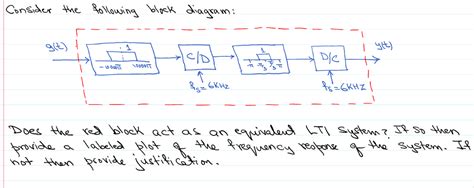 Consider the following block diagram:
g(t) 1 C/D 1 D/C y(t)
fs=6KHz fs=6KHz
Does the red block act as an equivalent LTI system? If so then
provide a labeled plot of the frequency respose of the system. If
not then provide justification.